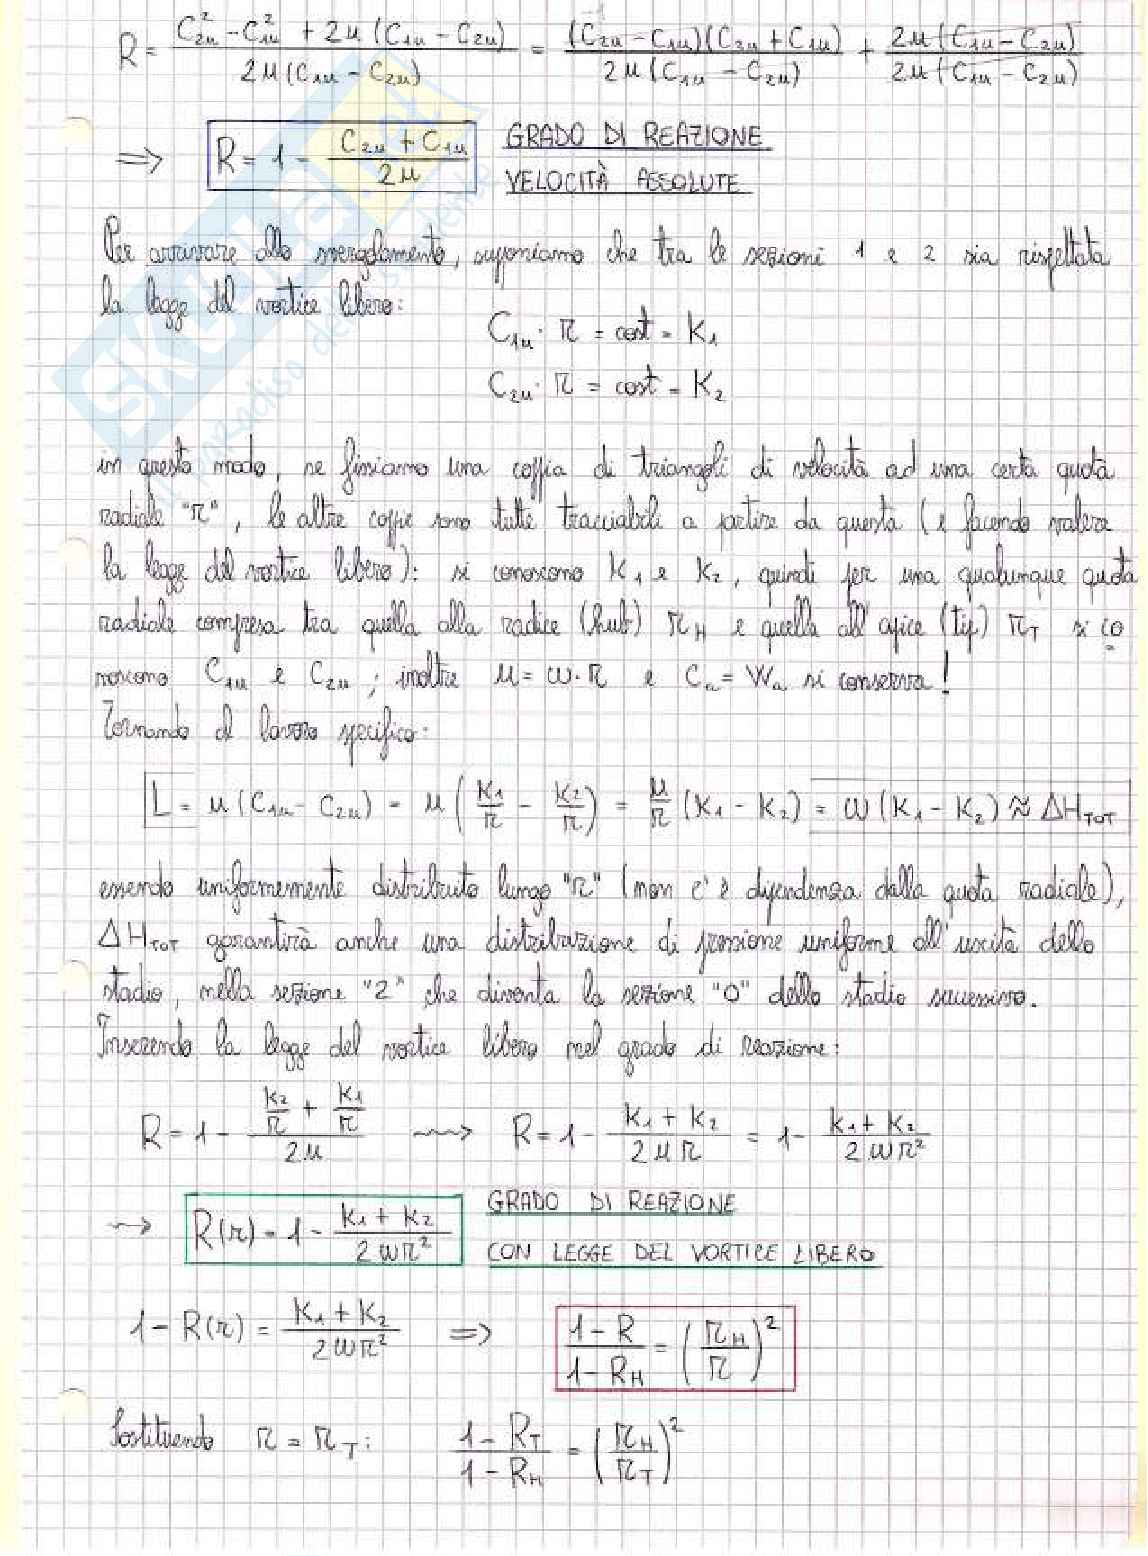 R = (C₂ᵤ² - C₁ᵤ² + 2u (C₁ᵤ - C₂ᵤ)) / (2u (C₁ᵤ - C₂ᵤ)) = ((C₂ᵤ - C₁ᵤ)(C₂ᵤ + C₁ᵤ)) / (2u (C₁ᵤ - C₂ᵤ)) + (2u (C₁ᵤ - C₂ᵤ)) / (2u (C₁ᵤ - C₂ᵤ))
⇒ R = 1 - (C₂ᵤ + C₁ᵤ) / 2u GRADO DI REAZIONE
VELOCITÀ ASSOLUTE
Per arrivare allo svergolamento, supponiamo che tra le sezioni 1 e 2 sia rispettata
la legge del vortice libero:
C₁ᵤ · r = cost = K₁
C₂ᵤ · r = cost = K₂
in questo modo, se fissiamo una coppia di triangoli di velocità ad una certa quota
radiale "r", le altre coppie sono tutte tracciabili a partire da questa (e facendo valere
la legge del vortice libero): si conoscono K₁ e K₂, quindi per una qualunque quota
radiale compresa tra quella alla radice (hub) r_H e quella all'apice (tip) r_T si co
noscono C₁ᵤ e C₂ᵤ; inoltre u = ω · r e Cₐ = Wₐ si conserva!
Tornando al lavoro specifico:
L = u (C₁ᵤ - C₂ᵤ) = u (K₁/r - K₂/r) = u/r (K₁ - K₂) = ω (K₁ - K₂) ≈ ΔH_TOT
essendo uniformemente distribuito lungo "r" (non c'è dipendenza dalla quota radiale),
ΔH_TOT garantirà anche una distribuzione di pressione uniforme all'uscita dello
stadio, nella sezione "2" che diventa la sezione "0" dello stadio successivo.
Inserendo la legge del vortice libero nel grado di reazione:
R = 1 - (K₂/r + K₁/r) / 2u ⇝ R = 1 - (K₁ + K₂) / (2 u r) = 1 - (K₁ + K₂) / (2 ω r²)
⇝ R(r) = 1 - (K₁ + K₂) / (2 ω r²) GRADO DI REAZIONE
CON LEGGE DEL VORTICE LIBERO
1 - R(r) = (K₁ + K₂) / (2 ω r²) ⇒ (1 - R) / (1 - R_H) = (r_H / r)²
Sostituendo r = r_T: (1 - R_T) / (1 - R_H) = (r_H / r_T)²